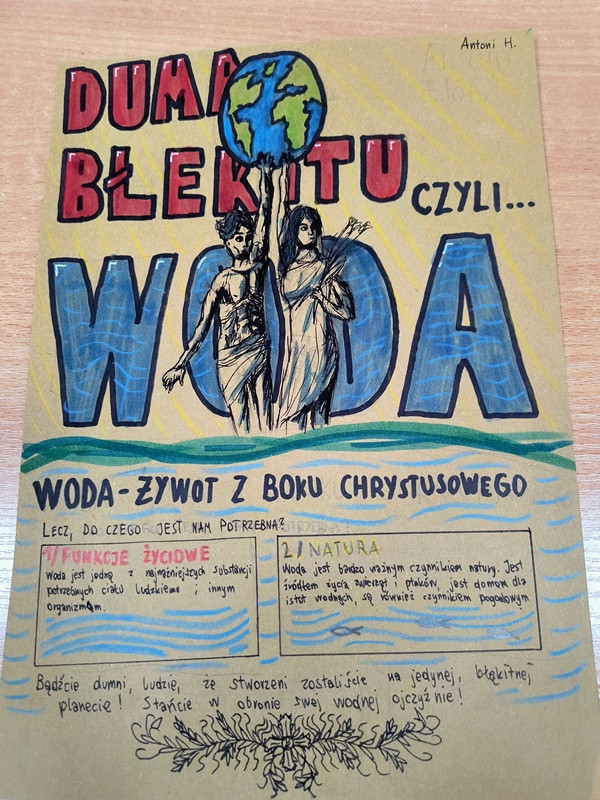 Antoni H.
DUMA
BŁEKITU
CZYLI...
WODA
WODA-ŻYWOT Z BOKU CHRYSTUSOWEGO
LECZ, DO CZEGO JEST NAM POTRZEBNA?
1/FUNKCJE ŻYCIOWE
Woda jest jedną z najważniejszych substancji
potrzebnych ciału ludzkiemu i innym
organizmom.
2/NATURA
Woda jest bardzo ważnym czynnikiem natury. Jest
źródłem życia zwierząt i ptaków, jest domem dla
istot wodnych, są również czynnikiem pogodowym
Bądźcie dumni, ludzie, że stworzeni zostaliście na jedynej, błękitnej
planecie! Stańcie w obronie swej wodnej ojczyźnie!